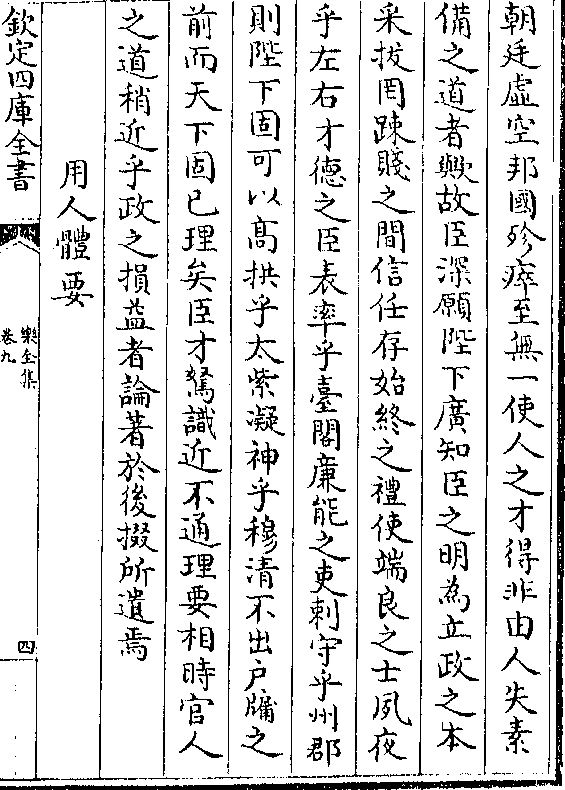 朝廷虛空邦國殄瘁至無一使人之才得非由人失素
備之道者歟故臣深願陛下廣知臣之明為立政之本
采拔罔踈賤之間信任存始終之禮使端良之士夙夜
乎左右才德之臣表率乎臺閣亷能之吏刺守乎州郡
則陛下固可以髙拱乎太紫凝神乎穆清不出户牖之
前而天下固已理矣臣才駑識近不通理要相時官人
之道稍近乎政之損益者論著於後掇所遺焉
用人體要
欽定四庫全書
樂全集
卷九
四